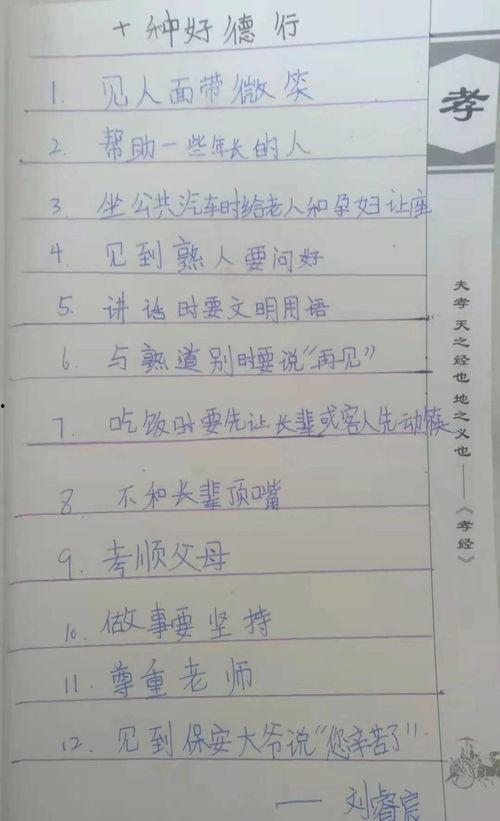 十种好德行
1. 见人面带微笑
2. 帮助一些年长的人
3. 坐公共汽车时给老人和孕妇让座
4. 见到熟人要问好
5. 讲话时要文明用语
6. 与熟道别时要说“再见”
7. 吃饭时要先让长辈或客人先动筷
8. 不和长辈顶嘴
9. 孝顺父母
10. 做事要坚持
11. 尊重老师
12. 见到保安大爷说“您辛苦了”
—— 刘睿宸
孝
夫孝 天之经也 地之义也——《孝经》